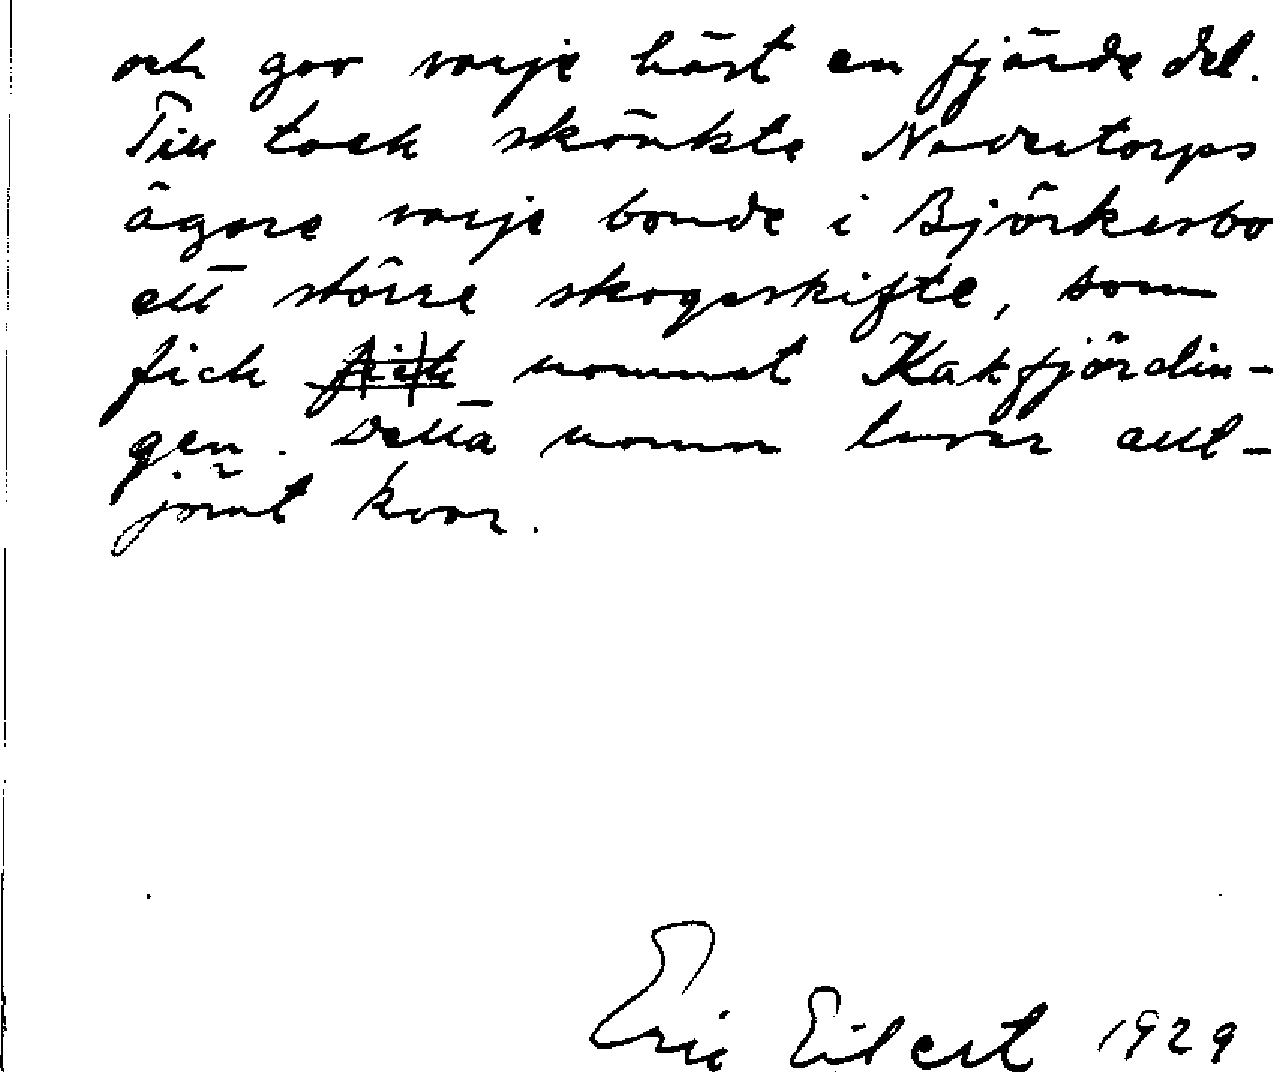 och gav varje häst en fjärde del.
Till tack skänkte Nadutorps
ägare varje bonde i Björkerbo
ett större skogsskifte, som
fick fick namnet Kakfjärdin-
gen. Detta namn lever allt-
jämt kvar.
Eric Eilert 1929